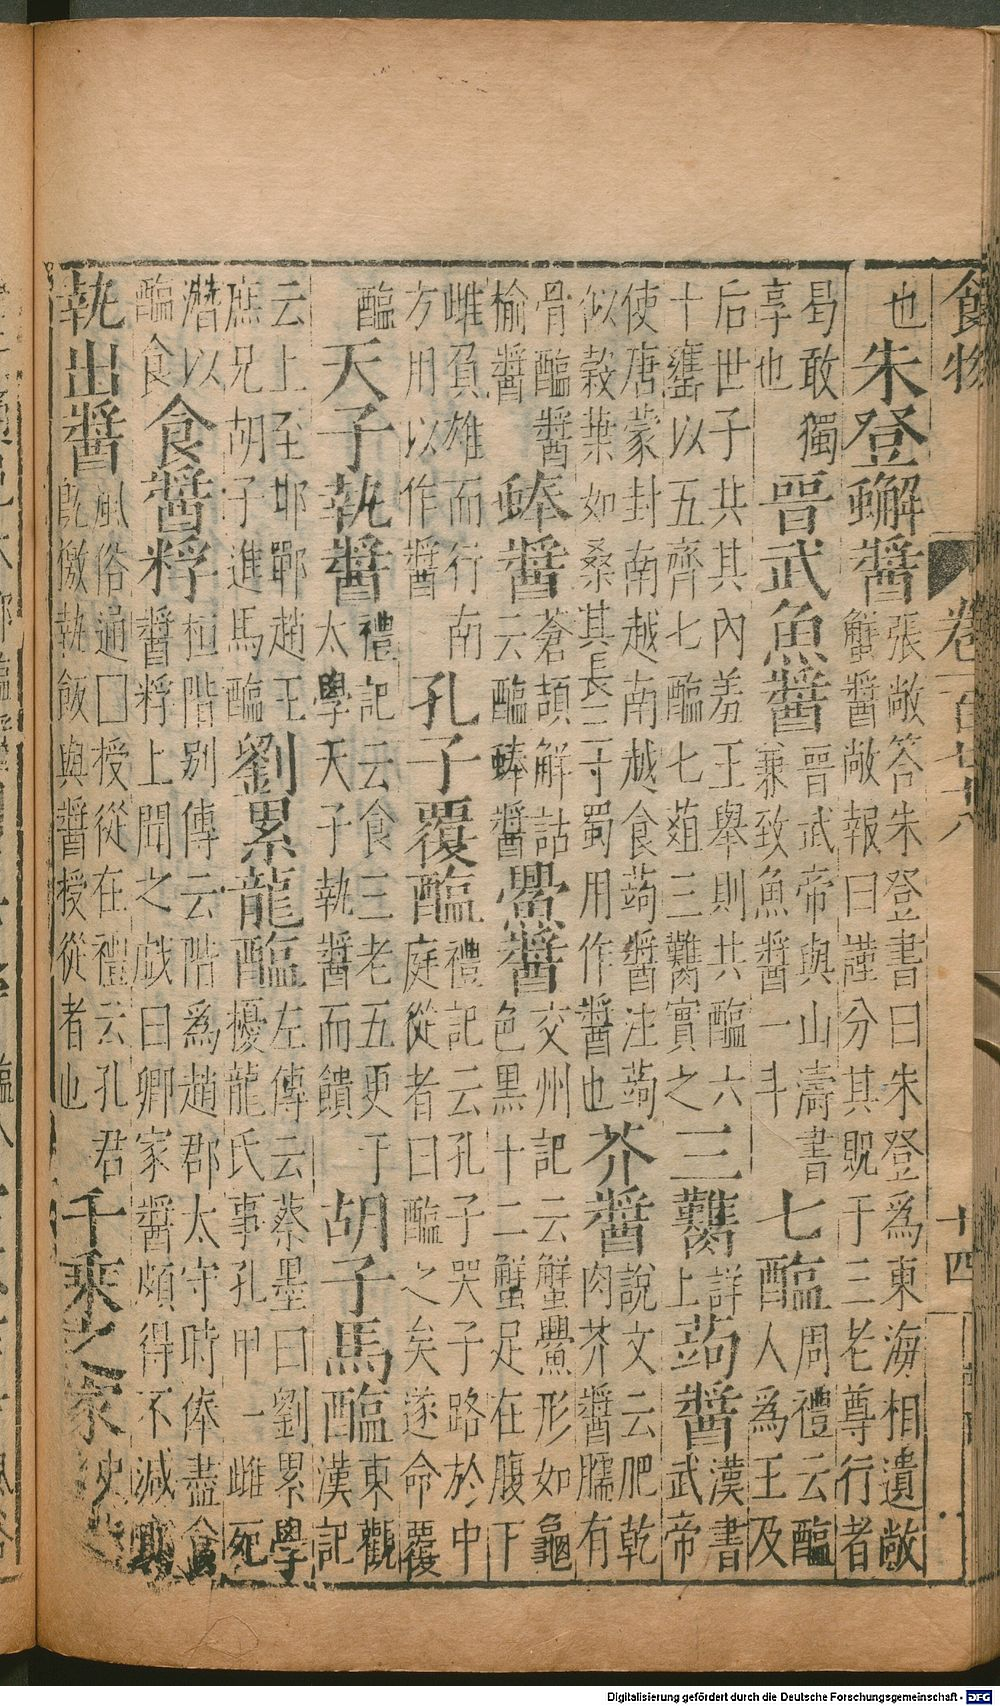 食物 卷一百七十八 十四
也 朱登蠏醬 張敞答朱登書曰朱登爲東海相遺敞
蟹醬敞報曰謹分其貺于三老尊行者
曷敢獨
享也 晉武魚醬 晉武帝與山濤書
兼致魚醬一斗 七醢 周禮云醢
人爲王及
后世子共其內羞王舉則共醢六
十罋以五齊七醢七葅三臡實之 三臡 詳
上 蒟醬 漢書
武帝
使唐蒙封南越南越食蒟醬注蒟
似榖葉如桑其長二三寸蜀用作醬也 芥醬 說文云肥乾
肉芥醬臑有
骨醢醬
榆醬 蜯醬 蒼頡解詁
云醢蜯醬 鱟醬 交州記云蟹鱟形如龜
色黑十二蟹足在腹下
雌負雄而行南
方用以作醬 孔子覆醢 禮記云孔子哭子路於中
庭從者曰醢之矣遂命覆
醢 天子執醬 禮記云食三老五更于
太學天子執醬而饋 胡子馬醢 東觀
漢記
云上至邯鄲趙王
庶兄胡子進馬醢 劉累龍醢 左傳云蔡墨曰劉累學
擾龍氏事孔甲一雌死
潛以
醢食 食醬稃 桓階别傳云階爲趙郡太守時俸盡食
醬稃上聞之戲曰卿家醬頗得不減
執出醬 風俗通曰授從在禮云孔君
既徼執飯與醬授從者也 千乘之家 史
Digitalisierung gefördert durch die Deutsche Forschungsgemeinschaft - DFG